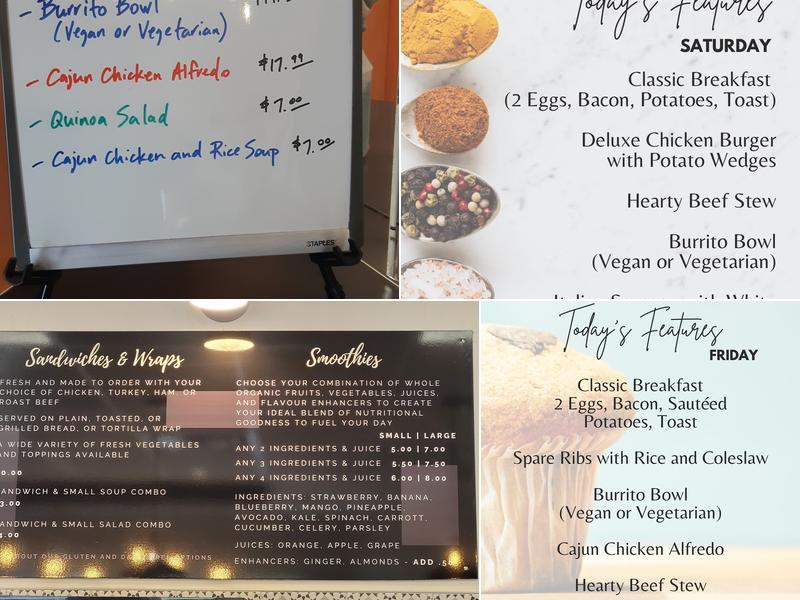 - Burrito Bowl
(Vegan or Vegetarian)
- Cajun Chicken Alfredo $17.99
- Quinoa Salad $7.00
- Cajun Chicken and Rice Soup $7.00
STAPLES
Today's Features
SATURDAY
Classic Breakfast
(2 Eggs, Bacon, Potatoes, Toast)
Deluxe Chicken Burger
with Potato Wedges
Hearty Beef Stew
Burrito Bowl
(Vegan or Vegetarian)
Sandwiches & Wraps
FRESH AND MADE TO ORDER WITH YOUR
CHOICE OF CHICKEN, TURKEY, HAM, OR
ROAST BEEF
SERVED ON PLAIN, TOASTED, OR
GRILLED BREAD, OR TORTILLA WRAP
A WIDE VARIETY OF FRESH VEGETABLES
AND TOPPINGS AVAILABLE
SANDWICH & SMALL SOUP COMBO
SANDWICH & SMALL SALAD COMBO
GLUTEN AND OPTIONS
Smoothies
CHOOSE YOUR COMBINATION OF WHOLE
ORGANIC FRUITS, VEGETABLES, JUICES,
AND FLAVOUR ENHANCERS TO CREATE
YOUR IDEAL BLEND OF NUTRITIONAL
GOODNESS TO FUEL YOUR DAY
SMALL | LARGE
ANY 2 INGREDIENTS & JUICE 5.00 | 7.00
ANY 3 INGREDIENTS & JUICE 5.50 | 7.50
ANY 4 INGREDIENTS & JUICE 6.00 | 8.00
INGREDIENTS: STRAWBERRY, BANANA,
BLUEBERRY, MANGO, PINEAPPLE,
AVOCADO, KALE, SPINACH, CARROTT,
CUCUMBER, CELERY, PARSLEY
JUICES: ORANGE, APPLE, GRAPE
ENHANCERS: GINGER, ALMONDS - ADD .50
Today's Features
FRIDAY
Classic Breakfast
2 Eggs, Bacon, Sautéed
Potatoes, Toast
Spare Ribs with Rice and Coleslaw
Burrito Bowl
(Vegan or Vegetarian)
Cajun Chicken Alfredo
Hearty Beef Stew